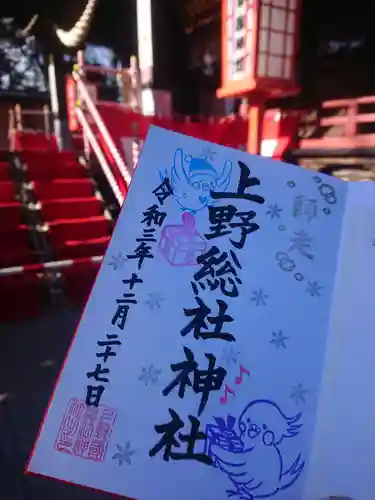 師走
上野総社神社
令和三年十二月二十七日